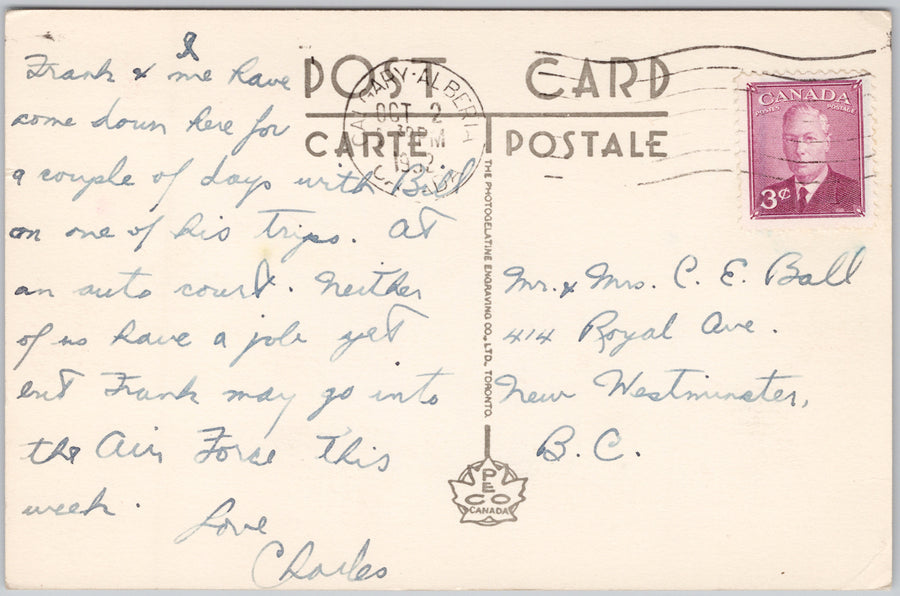 I
Frank & me have
come down here for
a couple of days with Bill
on one of his trips. At
an auto court. Neither
of us have a job yet
but Frank may go into
the Air Force this
week.
Love
Charles
POST CARD
CARTE POSTALE
CALGARY-ALBERTA
OCT 2
PM
1952
CANADA
POSTES POSTAGE
3¢
THE PHOTOGELATINE ENGRAVING CO., LTD., TORONTO.
PECO
CANADA
Mr. & Mrs. C. E. Ball
414 Royal Ave.
New Westminster,
B.C.